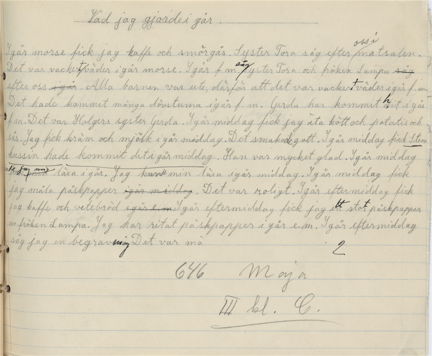 Vad jag gjorde i går.
Igår morse fick jag kaffe och smörgås. Syster Tora såg efter oss i matsalen.
Det var vackert väder igår morse. Igår f.m. såg Syster Tora och fröken Lampa såg
efter oss igår. Alla barnen var ute, därför att det var vackert väder igår f.m.
Det hade kommit många döv igår f.m. Gerda har kommit hit igår
f.m. Det var Helgers syster Gerda. Igår middag fick jag äta kött och potatis och
sås. Jag fick kräm och mjölk i går middag. Det smakade gott. Igår middag fick Sten
hade kommit dit igår middag. Han var mycket glad. Igår middag
jag läxa i går. Jag kunde min läxa igår middag. Igår middag fick
jag måla påskpapper igår middag. Det var roligt. Igår eftermiddag fick
jag kaffe och vetebröd igår e.m. Igår eftermiddag fick jag ett stort påskpapper
av fröken Lampa. Jag har ritat påskpapper i går e.m. Igår eftermiddag
såg jag en begravning Det var må
2
646 Maja
III kl. C.